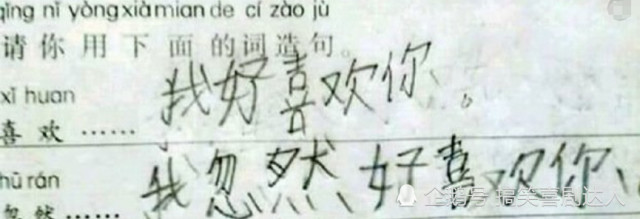 qǐng nǐ yòng xià mian de cí zào jù
请你用下面的词造句。
xǐ huan
喜欢…… 我好喜欢你。
hū rán
忽然…… 我忽然好喜欢你、
企鹅号 搞笑喜局达人